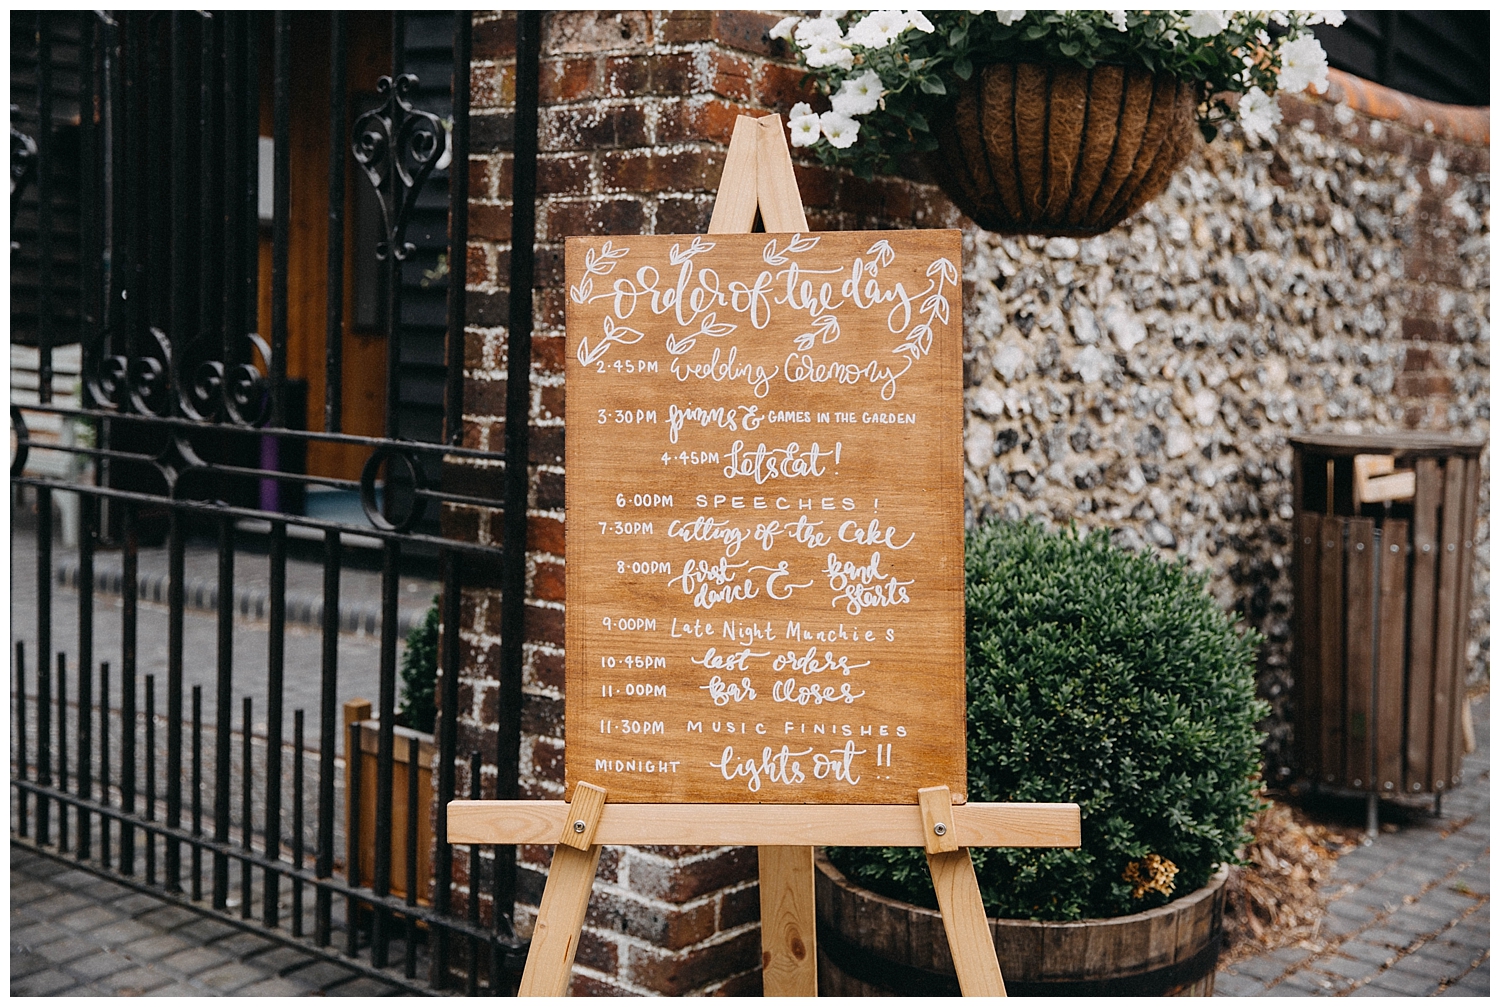 order of the day
2·45PM Wedding Ceremony
3·30PM Pimms & GAMES IN THE GARDEN
4·45PM Let's Eat!
6·00PM SPEECHES!
7·30PM Cutting of the Cake
8·00PM first dance & Band Starts
9·00PM Late Night Munchies
10·45PM last orders
11·00PM Bar Closes
11·30PM MUSIC FINISHES
MIDNIGHT lights out!!